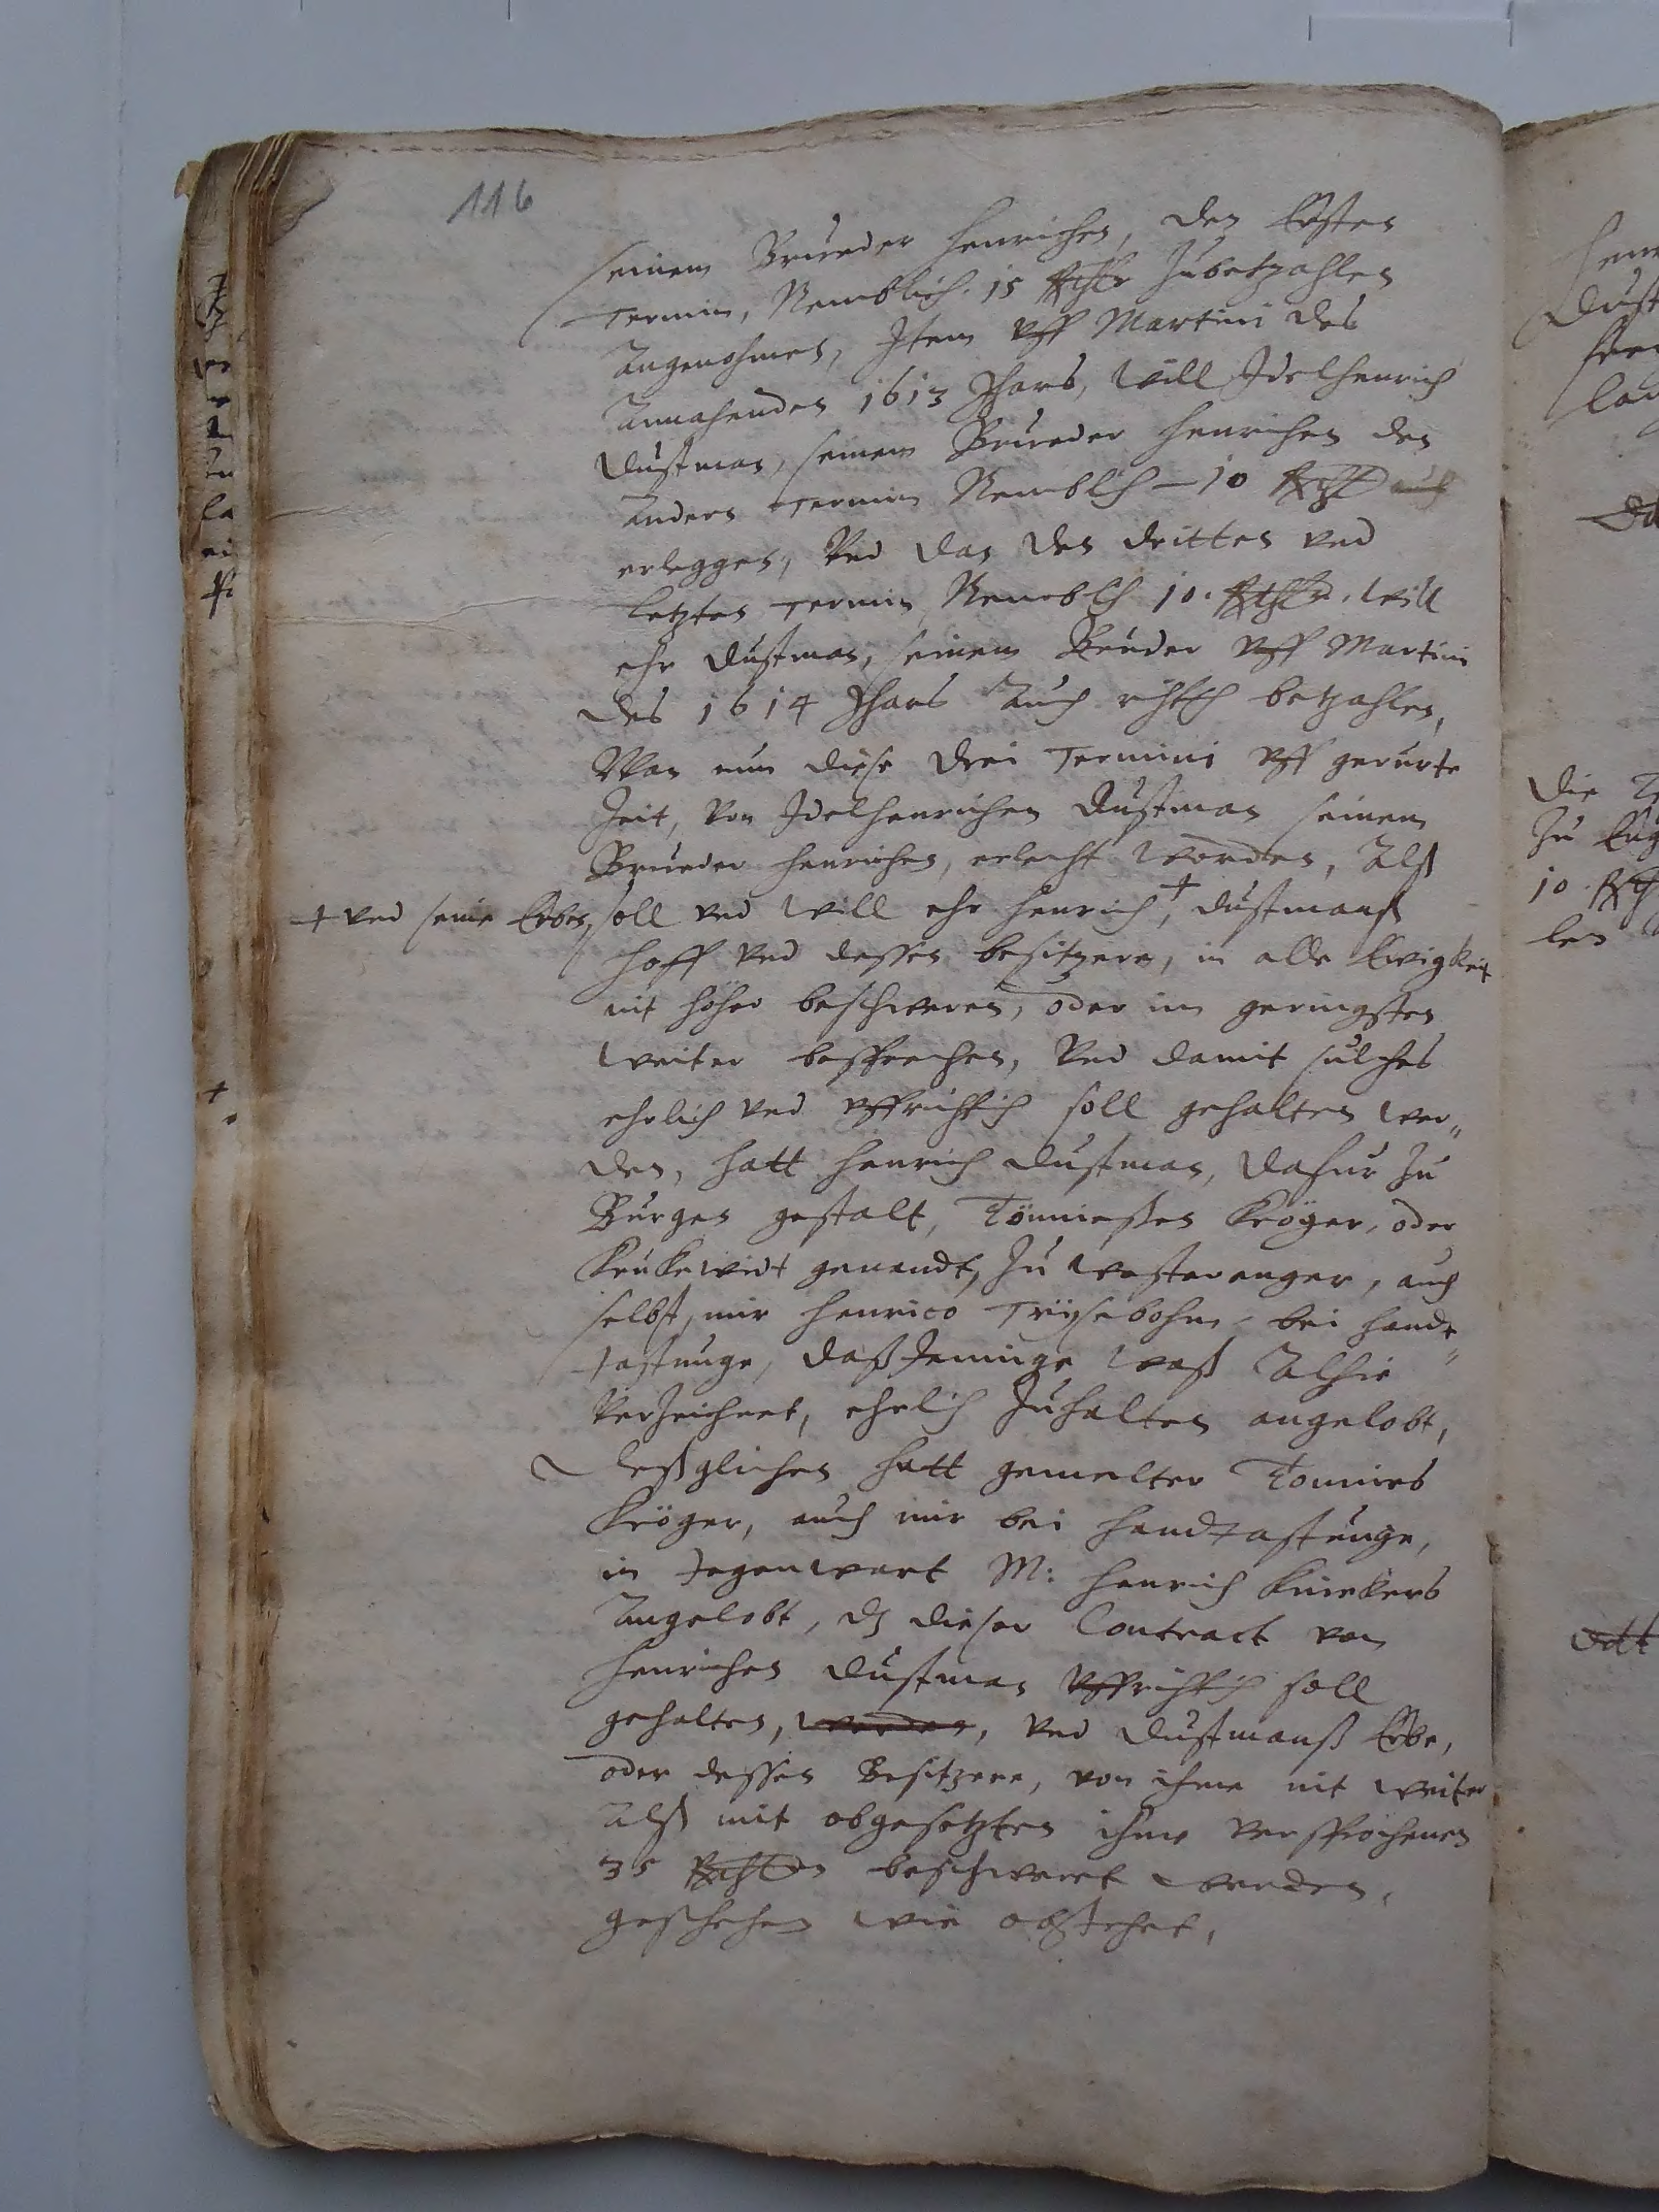 116
seinem Brueder Henrichen, den Ersten
Termin, Nemblich. 15 Rthlr Zubetzahlen
Angenohmen, Item vff Martini des
Annahenden 1613 Jhars, will Idelhenrich
Dustman, seinem Brueder Henrichen den
Andern Termin Nemblich 10 Rthlr auch
erleggen, Vnd dan den dritten vnd
letzten Termin Nemblich 10. Rthlr. will
ehr Dustman, seinem Bruder vff Martini
des 1614 Jhars Auch richtich betzahlen,
Wan nun diese drei Termini vff gerurte
Zeit, von Idelhenrichen Dustman seinem
Brueder Henrichen, erlecht worden, Alß
+ vnd seine Erben, soll vnd will ehr Henrich +, Dustmanß
Hoff vnd dessen besitzere, in alle Ewigkeit
nit höher beschweren, oder im geringsten
weiter besprechen, Vnd damit sulches
ehrlich vnd vffrichtich soll gehalten wer„
den, hatt Henrich Dustman, dafur Zu
Burgen gestalt, Tönnießen Kröger, oder
genandt, Zu Westeranger, auch
selbst, mir Henrico Trijsebohm bei handt„
tastunge, daßJeninge waß Alhie
Verzeichnet, ehrlich Zuhalten angelobt,
Deßglichen hatt gemelter Tonnies
Kröger, auch mir bei handtastunge,
in Jegenwart M: Henrich Knickers
Angelobt, dz dieser Contract von
Henrichen Dustman vffrichtich soll
gehalten, werden, vnd Dustmanß Erbe,
oder dessen Besitzere, von ihme nit weiter
Alß mit obgesetzten ihme versprochenen
35 Rthlrn beschweret werden,
geschehen wie obstehet,